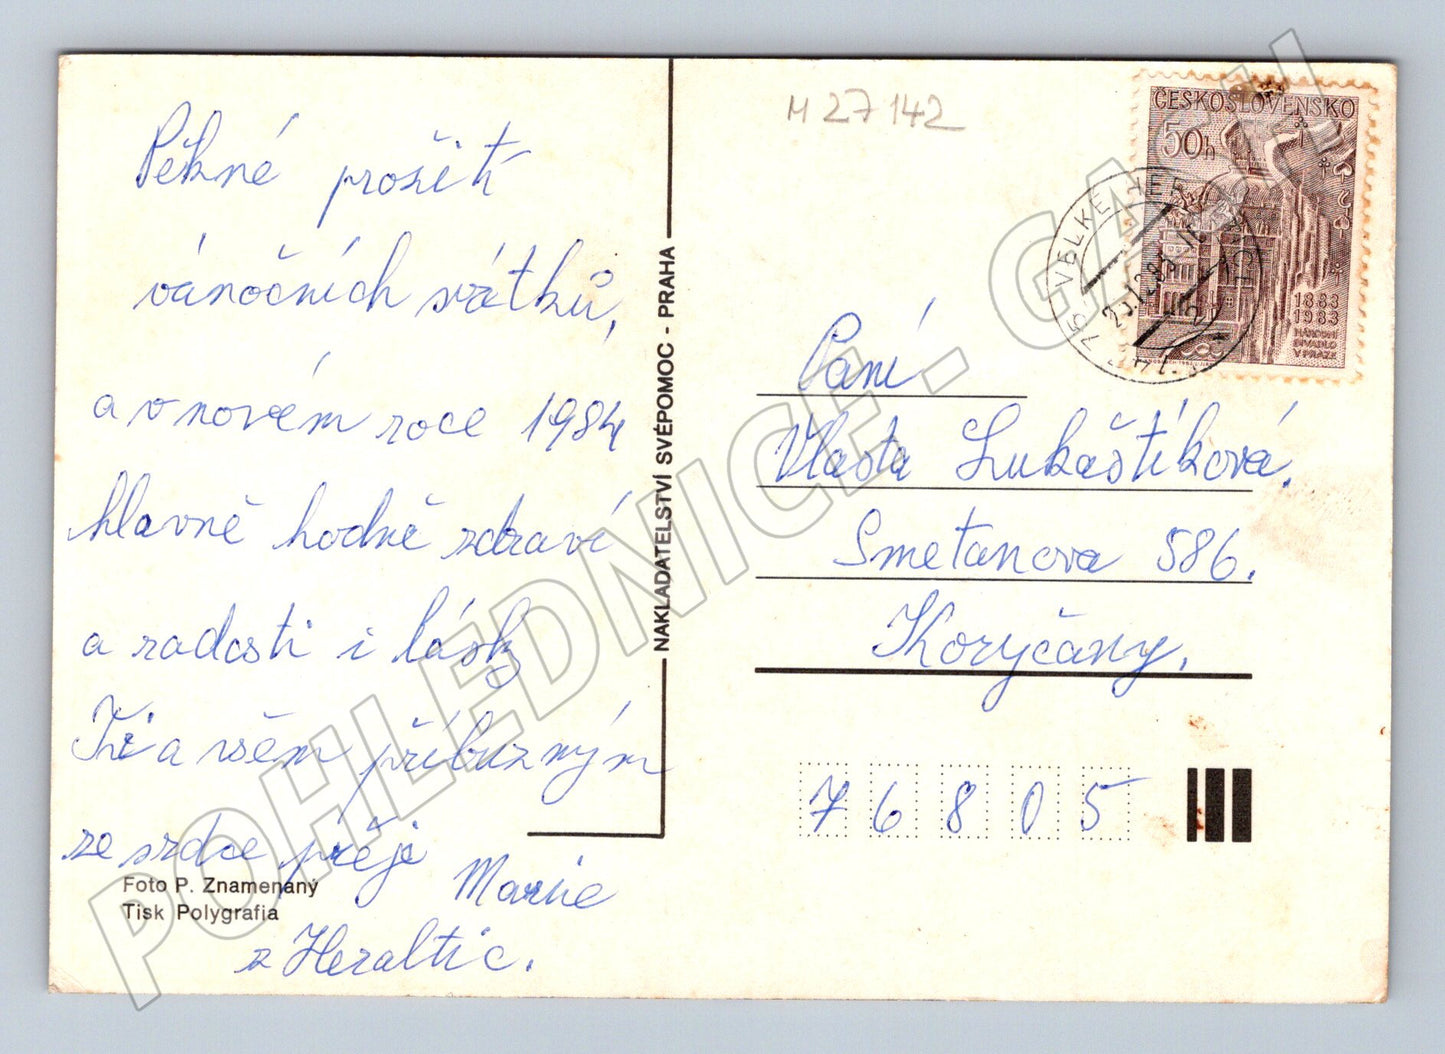 Pěkné prožití
vánočních svátků,
a v novém roce 1984
hlavně hodně zdraví
a radosti i lásky
Ti a všem příbuzným
ze srdce přeje
Marie
z Heraltic.
Foto P. Znamenaný
Tisk Polygrafia
NAKLADATELSTVÍ SVÉPOMOC - PRAHA
M 27142
ČESKOSLOVENSKO
50h
1883
1983
NÁRODNÍ
DIVADLO
V PRAZE
675 VELKÉ HERALTICE
23.12.83
Paní
Vlasta Lukaštíková.
Smetanova 586.
Koryčany.
76805
POHLEDNICE - GALI